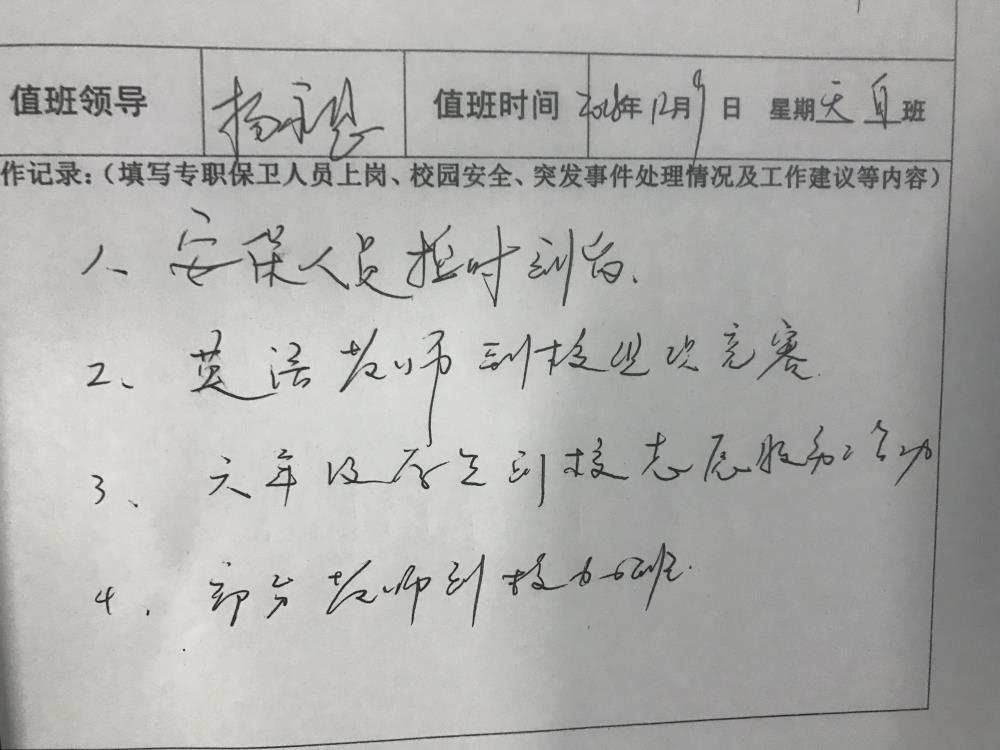 值班领导 杨 值班时间 2018年12月9日 星期天 白班
作记录:(填写专职保卫人员上岗、校园安全、突发事件处理情况及工作建议等内容)
1、安保人员按时到岗.
2、英语教师到校组织竞赛.
3、六年级学生到校志愿服务活动
4.部分教师到校加班.